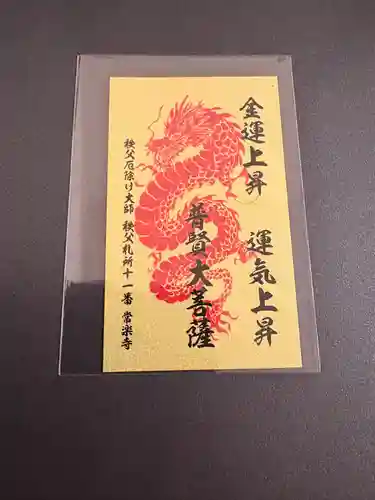 金運上昇
運気上昇
普賢大菩薩
秩父厄除け大師 秩父札所十一番 常楽寺